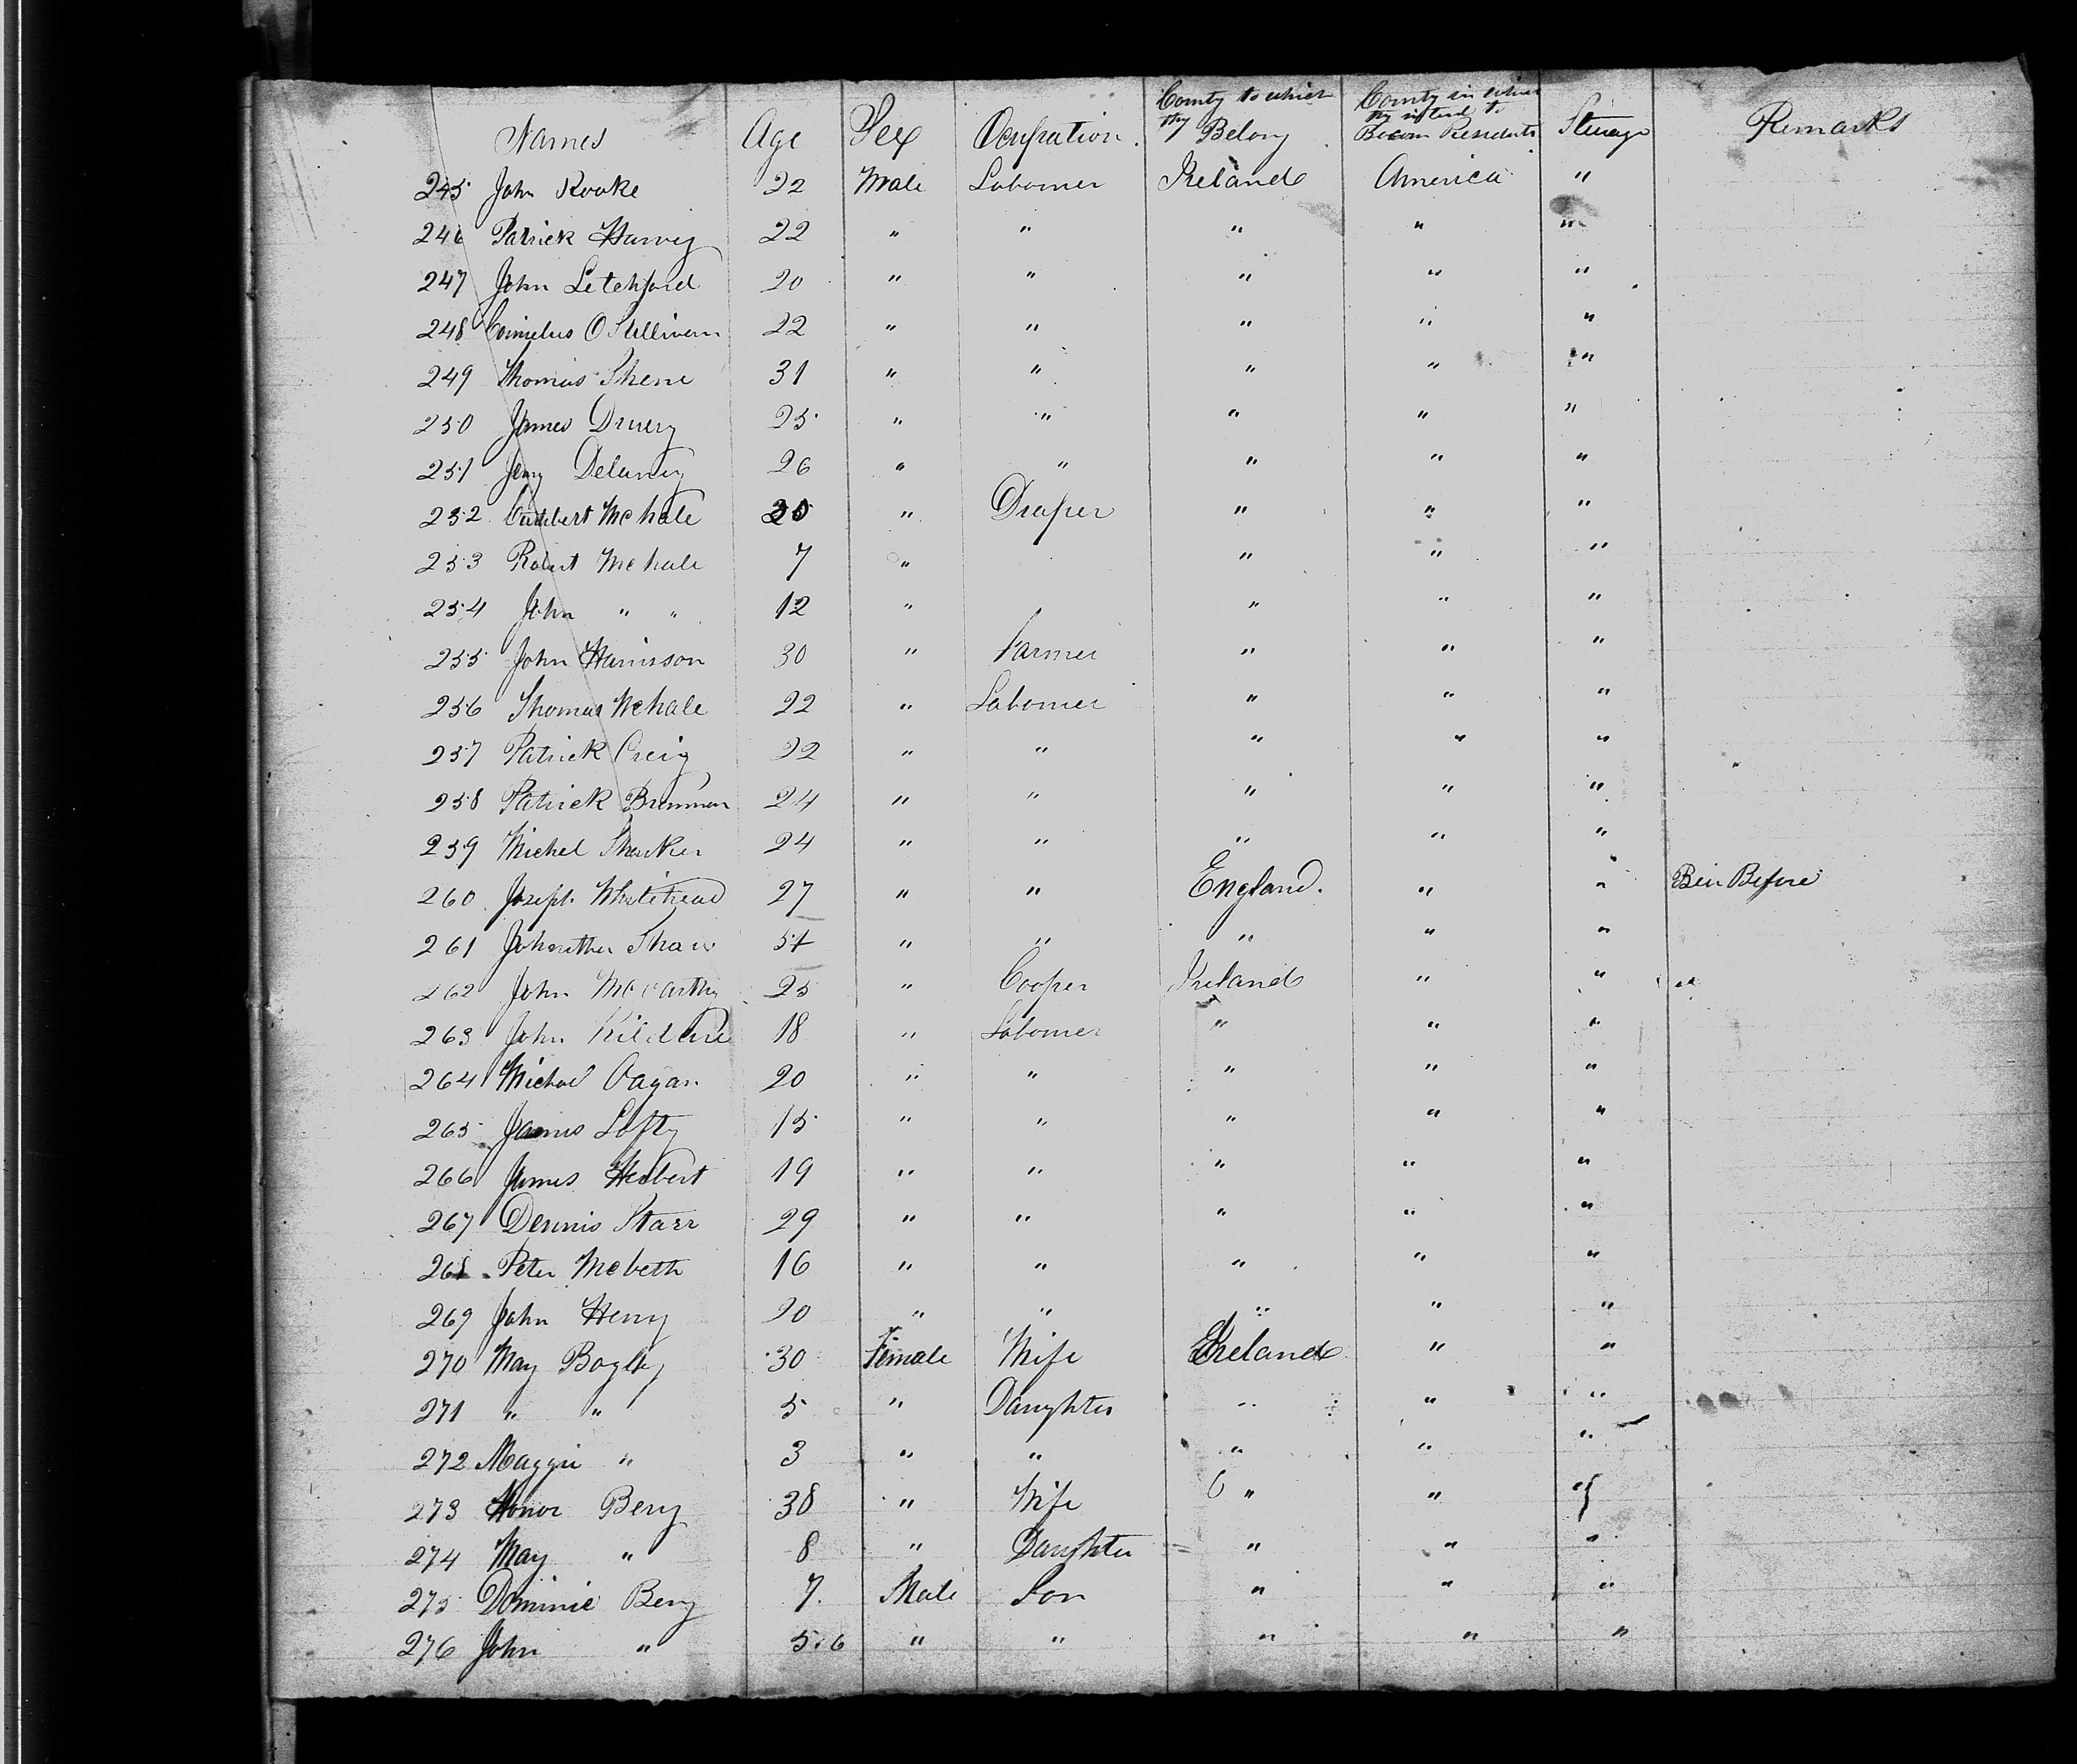 Names Age Sex Ocupation. County to which they Belong County in which they intend to Becom Residents Sterage Remarks
245 John Rooke 22 Male Labourer Ireland America "
246 Patrick Harvey 22 " " " " "
247 John Letchford 20 " " " " "
248 Cornelius O Sullivan 22 " " " " "
249 Thomas Shene 31 " " " " "
250 James Druery 25 " " " " "
251 Jerry Delaney 26 " " " " "
252 Cuthbert McHale 30 " Draper " " "
253 Robert McHale 7 " " " "
254 John " " 12 " " " "
255 John Harrisson 30 " Farmer " " "
256 Thomas McHale 22 " Labourer " " "
257 Patrick Creig 22 " " " " "
258 Patrick Brennan 24 " " " " "
259 Michel Sharker 24 " " " " "
260 Joseph Whitehead 27 " " England. " " Bein Before
261 Johnathen Shaw 54 " " " " "
262 John McCarthy 25 " Cooper Ireland " " "
263 John Kildare 18 " Labourer " " "
264 Michael 20 " " " " "
265 James Lofty 15 " " " " "
266 James Herbert 19 " " " " "
267 Dennis Starr 29 " " " " "
268 Peter Mcbeth 16 " " " " "
269 John Henry 20 " " " " "
270 May Bagley 30 Female Wife Ireland " "
271 " " 5 " Daughter " " "
272 Maggie " 3 " " " " "
273 Honor Bery 38 " Wife " " "
274 May " 8 " Daughter " " "
275 Dominic Bery 7. Male Son " " "
276 John " 5.6 " " " " "